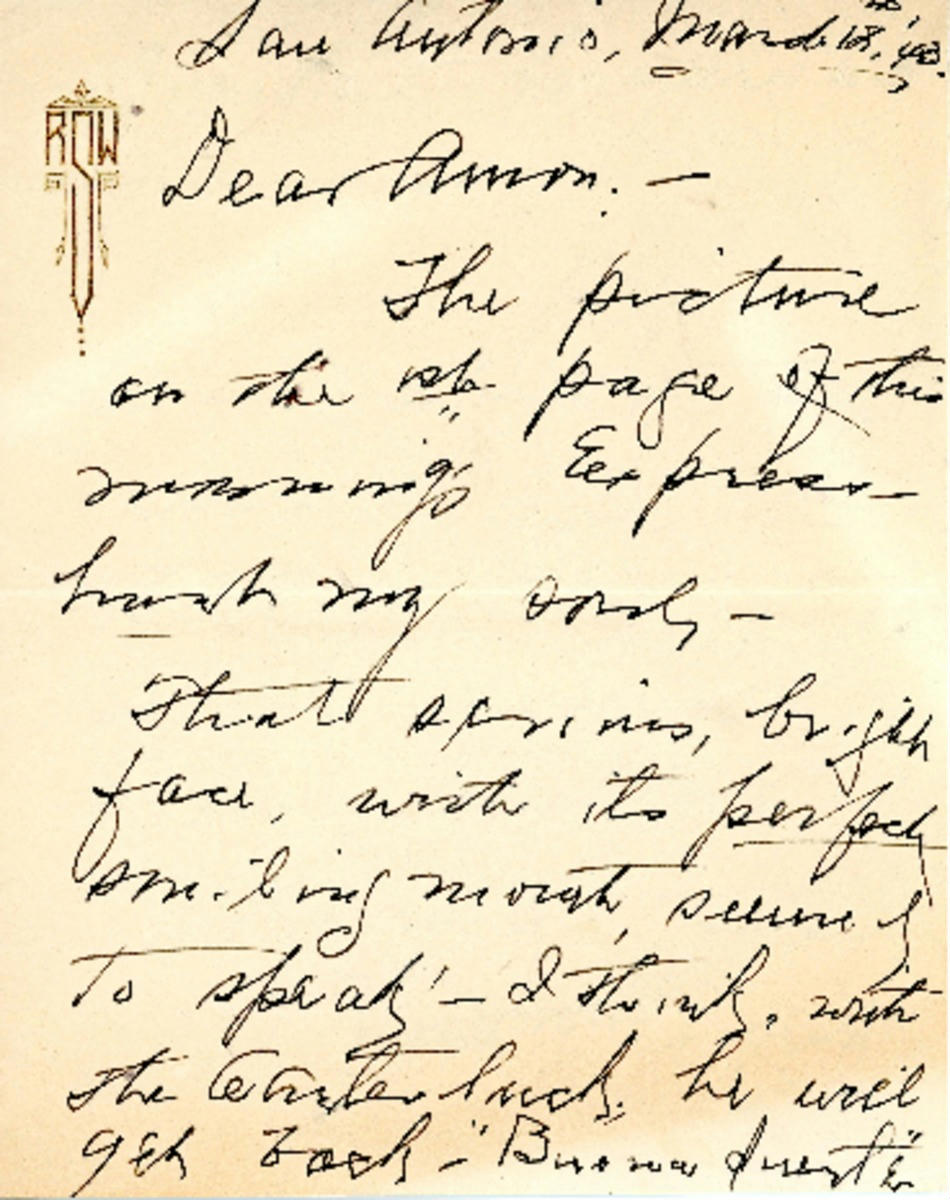 San Antonio, March 18th, '43.
RSW
Dear Amon. —
The picture
on the 1st page of this
morning's Express —
my —
That serious, bright
face, with its perfect
smiling mouth, seemed
to speak' — I think, with
the Carter luck, he will
get back — "Buena Suerte"